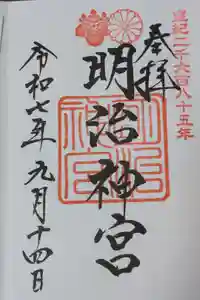 皇紀二千六百八十五年
奉拝
明治神宮
令和七年九月十四日
明治神宮